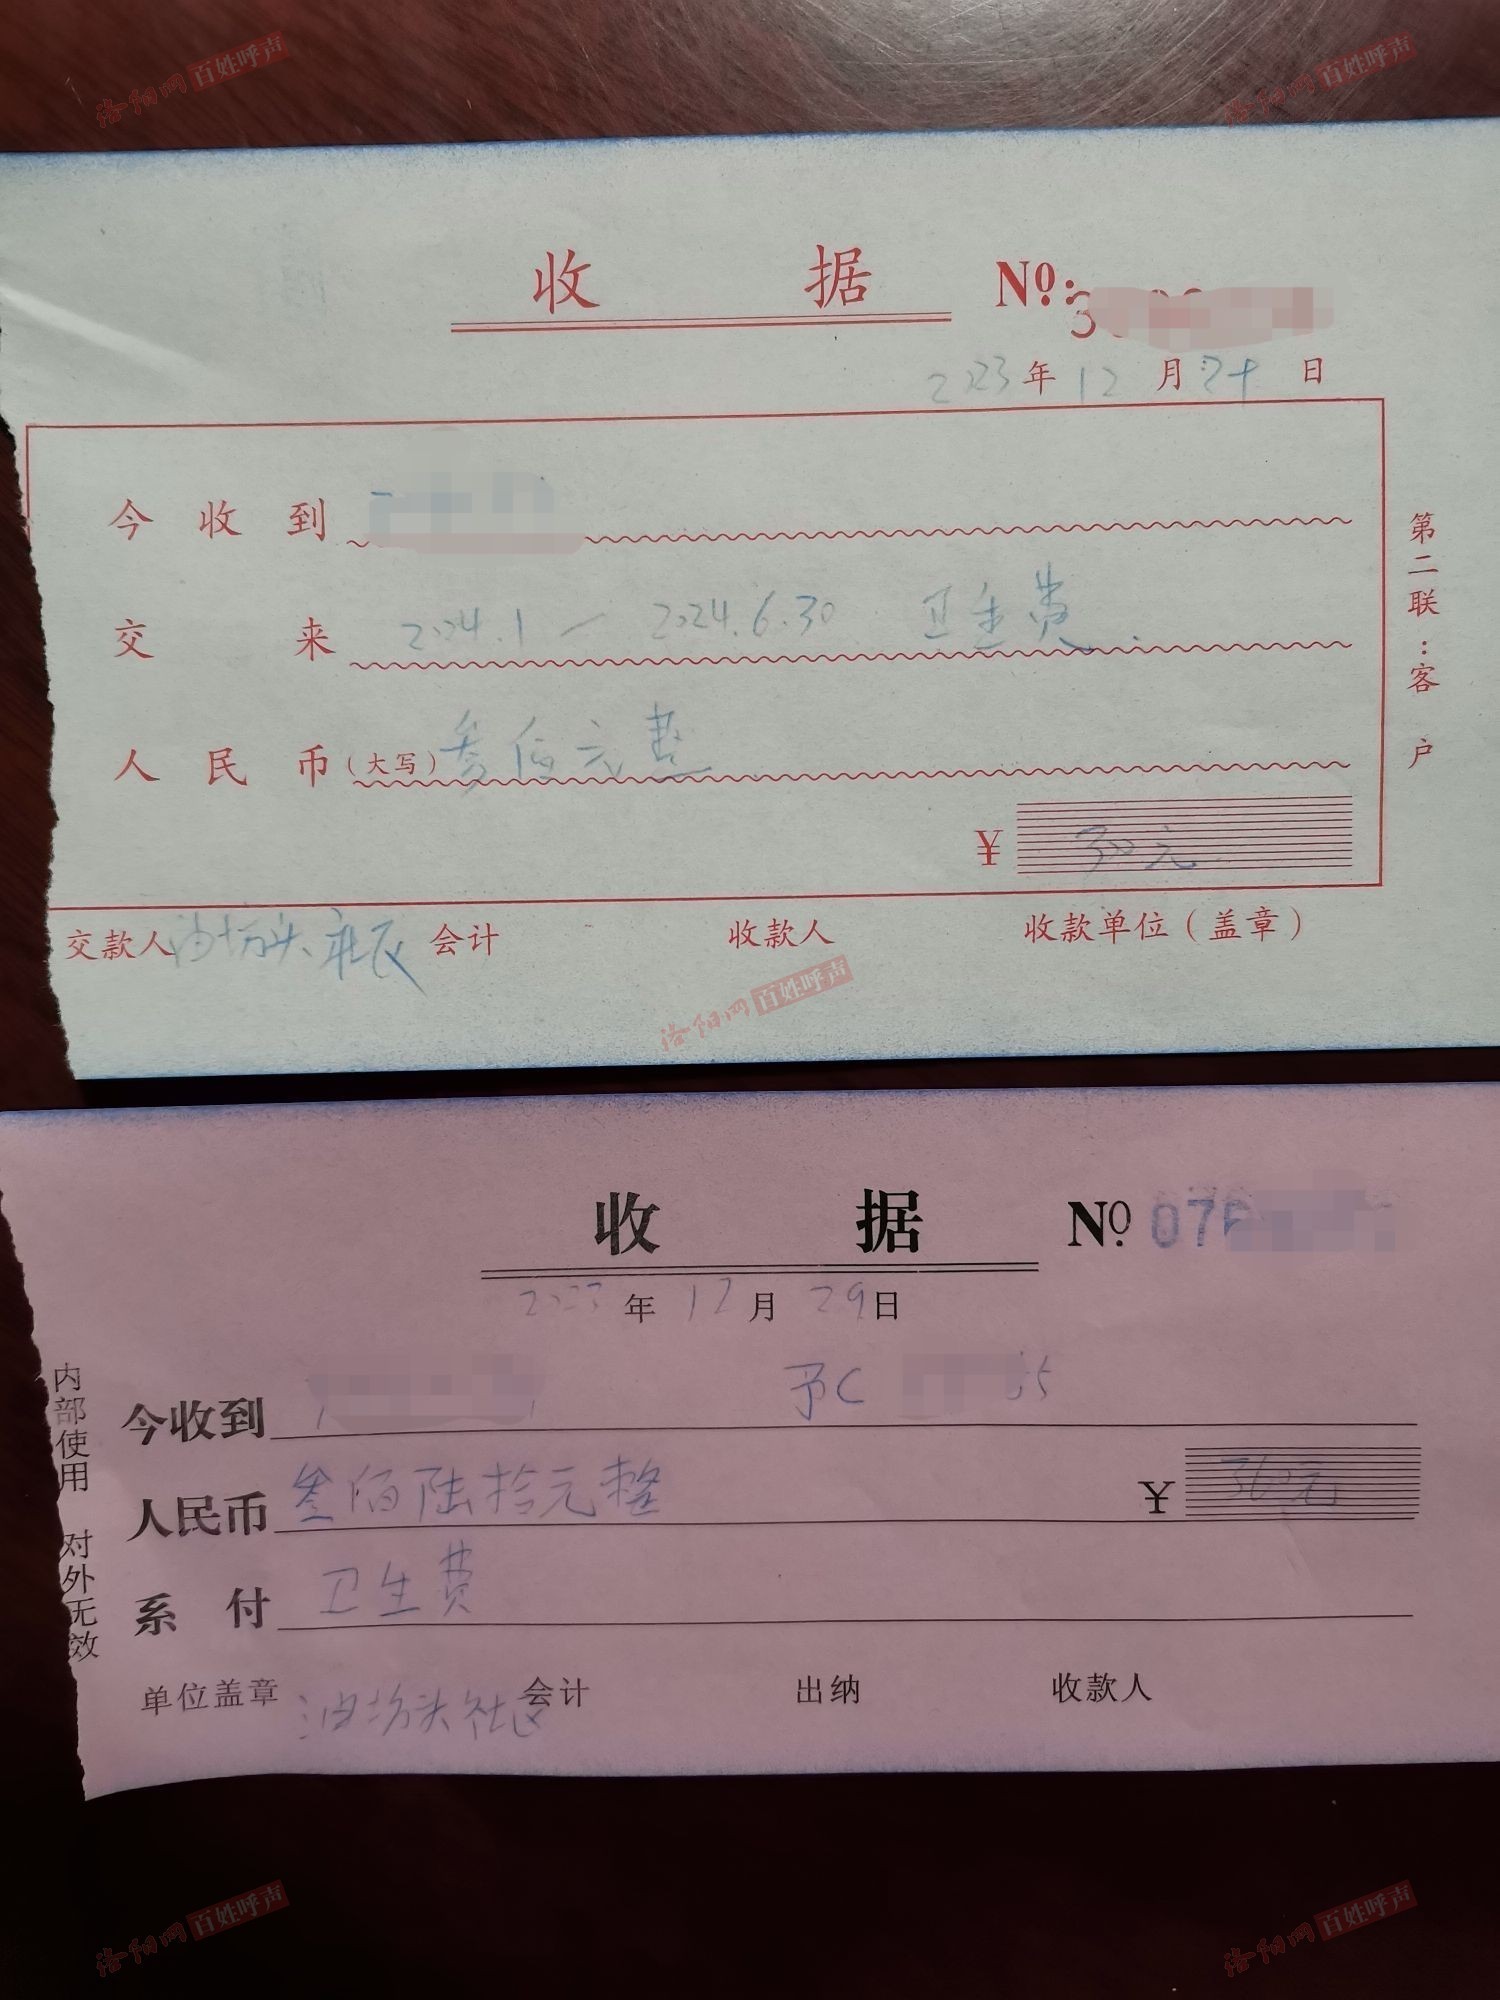 洛阳网 百姓呼声
洛阳网 百姓呼声
收 据 Nº:
2023年12月 日
今收到
交来 2024.1 — 2024.6.30 卫生费
人民币(大写) 叁佰元整
¥ 300元
交款人 油坊头社区 会计 收款人 收款单位(盖章)
第二联:客户
洛阳网 百姓呼声
收 据 Nº 07
2023年12月29日
今收到 予C 5
人民币 叁佰陆拾元整 ¥ 360元
系付 卫生费
单位盖章 油坊头社区 会计 出纳 收款人
内部使用 对外无效
洛阳网 百姓呼声
洛阳网 百姓呼声